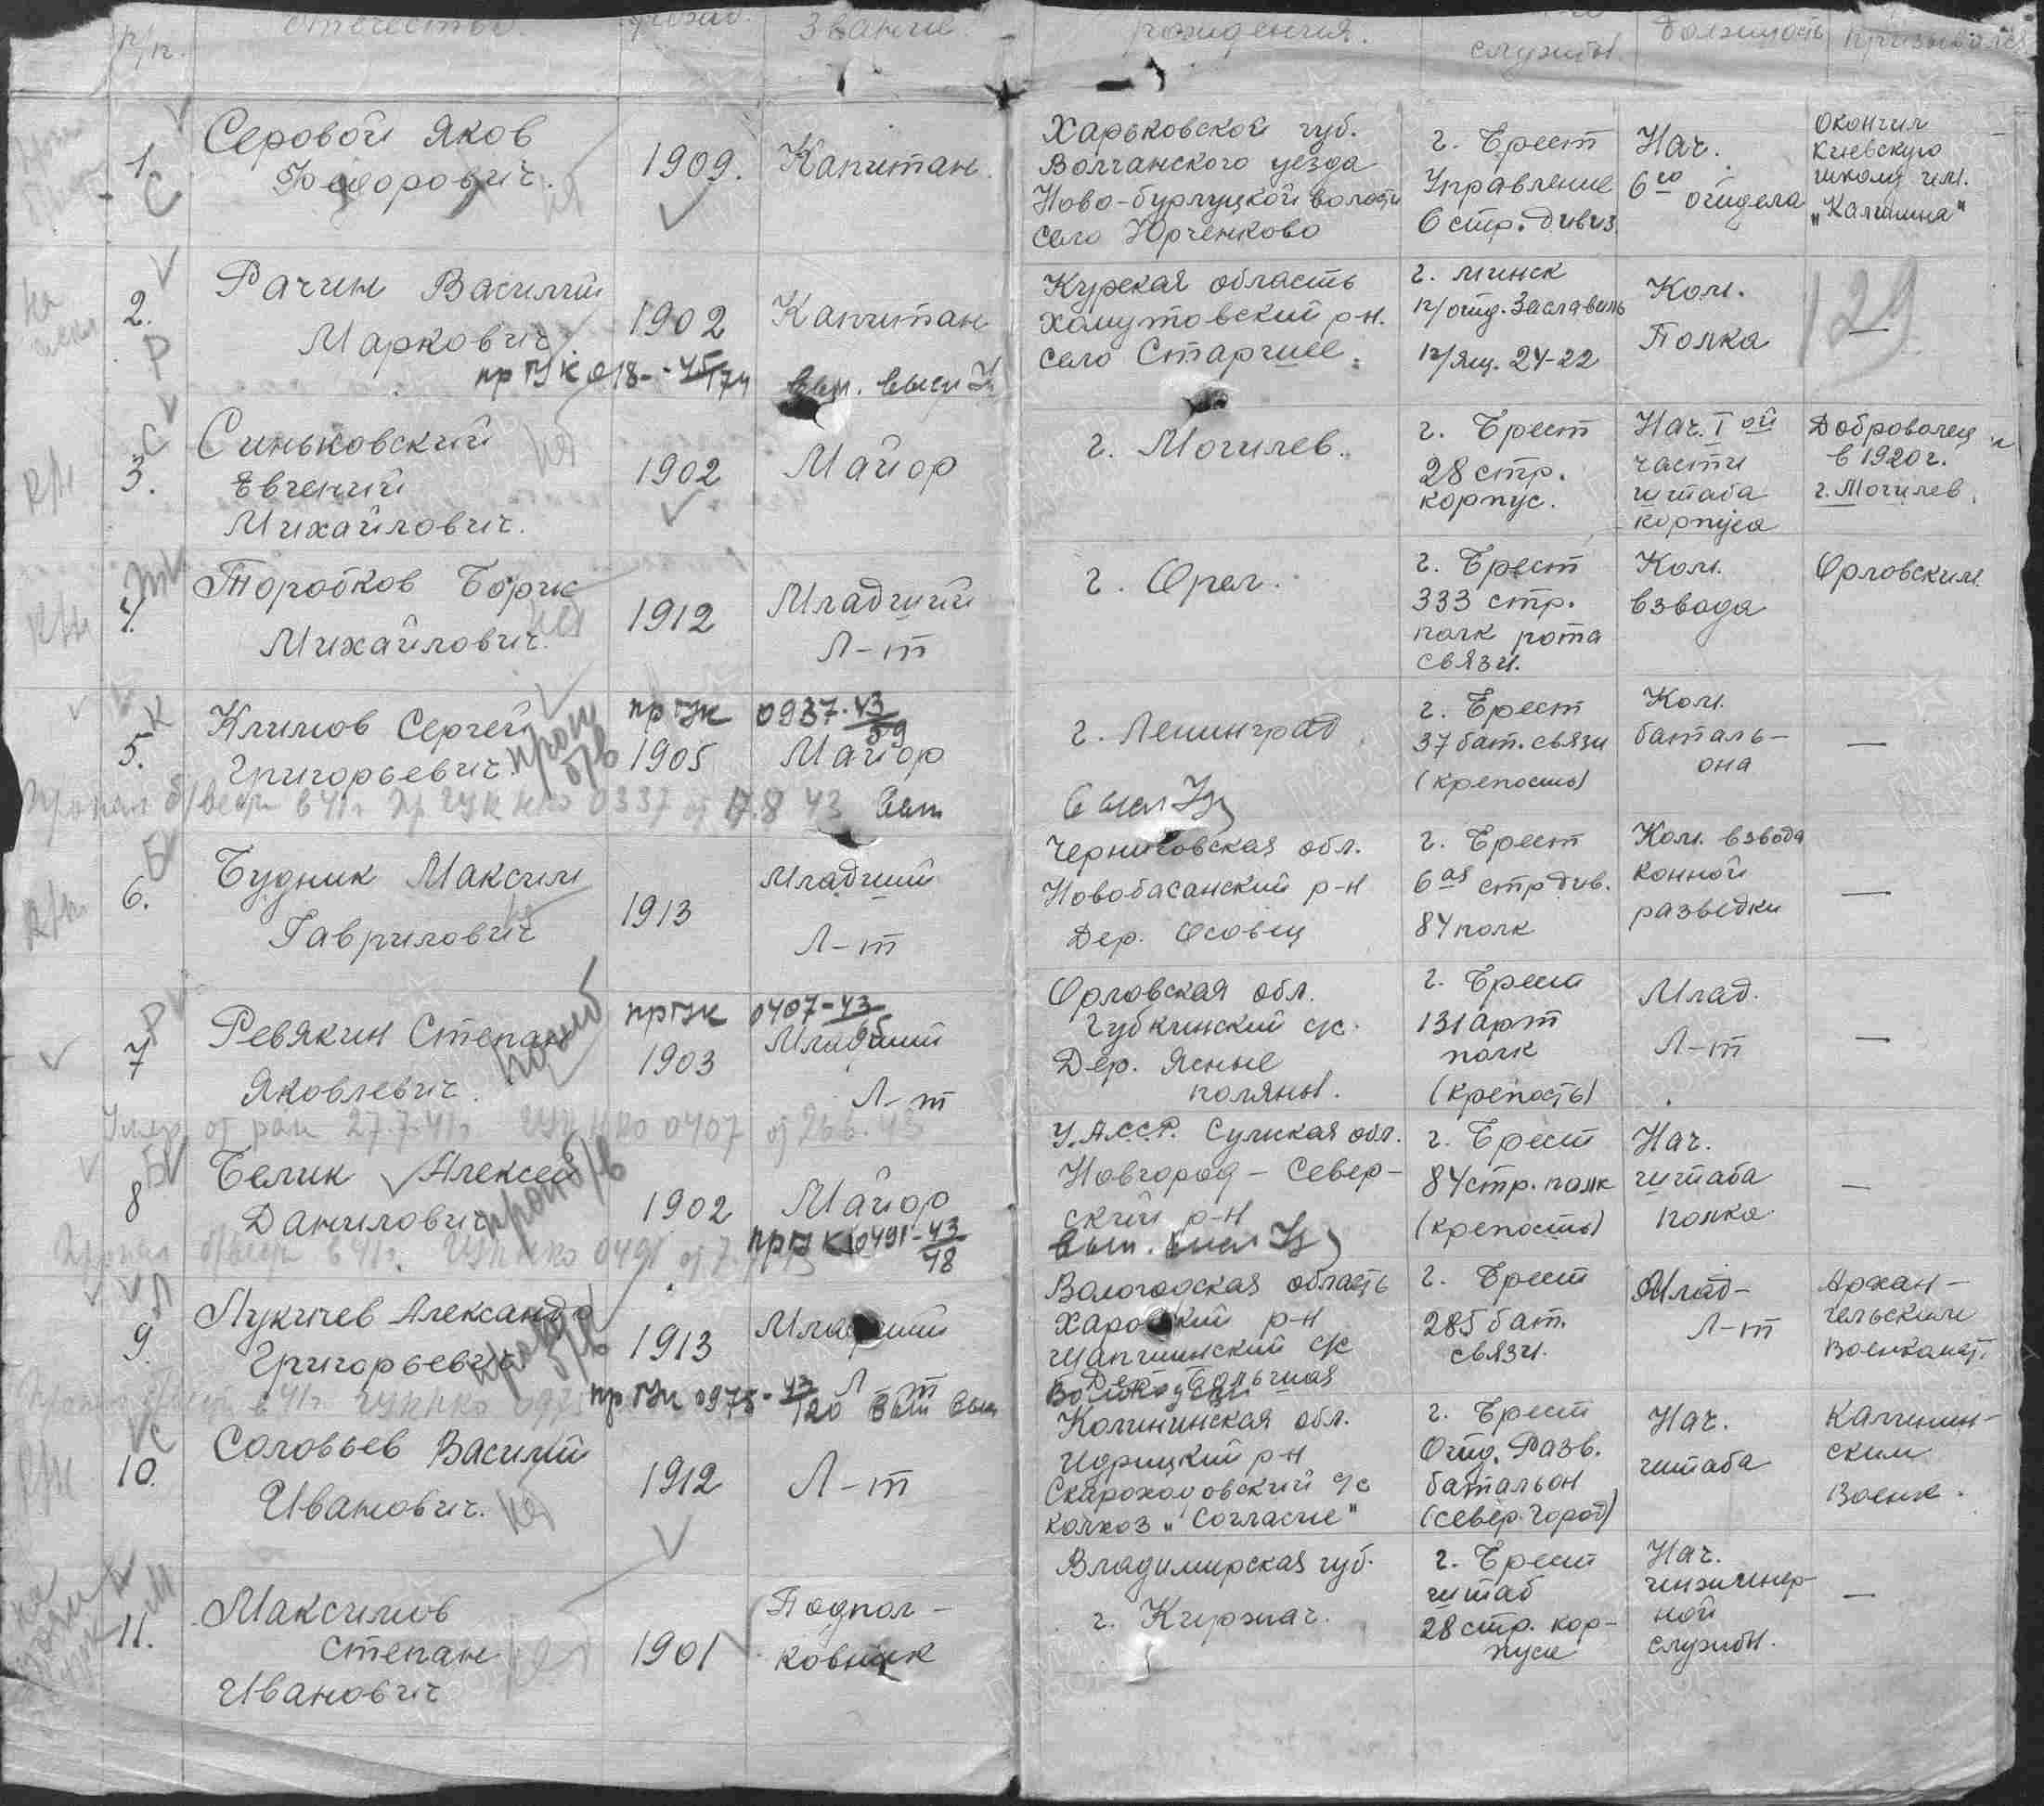 п/п. отчества. Звание рождения. службы. Должность призывался
1. Серовой Яков
Федорович.
1909. Капитан.
Харьковской губ.
Волчанского уезда
Ново-бурлуцкой волости
село Юрченково
г. Брест
Управление
6 стр. дивиз.
Нач.
6го отдела
Окончил
Киевскую
школу им.
"Калинина"
2. Рачин Василий
Маркович
1902 Капитан
пр ГУК 018-45/174 вып. высл
Курская область
Хомутовский р-н.
село Старшее.
г. Минск
п/отд. Заславль
п/ящ. 24-22
Ком.
Полка
129
—
3. Синьковский
Евгений
Михайлович.
1902 Майор
г. Могилев.
г. Брест
28 стр.
корпус.
Нач. I ой
части
штаба
корпуса
Доброволец
в 1920 г.
г. Могилев.
4. Торобков Борис
Михайлович.
1912 Младший
Л-т
г. Орел.
г. Брест
333 стр.
полк рота
связи.
Ком.
взвода
Орловским.
5. Климов Сергей
Григорьевич
проп
б/в
пр ГУК 0937-43/59
1905 Майор
Пропал б/вести в 41г Пр ГУК НКО 0337 от 17.8 43 вып
г. Ленинград
г. Брест
37 бат. связи
(крепость)
Ком.
баталь-
она
—
6. Будник Максим
Гаврилович
1913 Младший
Л-т
Черниговская обл.
Новобасанский р-н
Дер. Осовец
г. Брест
6ая стр див.
84 полк
Ком. взвода
конной
разведки
—
7 Ревякин Степан
Яковлевич.
погиб
пр ГУК 0407-43
1903 Младший
Л-т
Умер от ран 27.7.41г. ГУК НКО 0407 от 26.6.43
Орловская обл.
Губкинский с/с.
Дер. Ясные
поляны.
г. Брест
131 арт
полк
(крепость)
Млад.
Л-т
—
8 Белик Алексей
Данилович
проп б/в
1902 Майор
пр ГУК 0491-43/48
Пропал б/вести в 41г. ГУК НКО 0491 от 7.
У.А.С.С.Р. Сумская обл.
Новгород-Север-
ский р-н
вып.
г. Брест
84 стр. полк
(крепость)
Нач.
штаба
полка
—
9. Лукичев Александр
Григорьевич
б/в
1913 Младший
Л-т
пр ГУК 0975-43/120 вып высл
Вологодская область
Харовский р-н
Шапшинский с/с
Дер. Большая
г. Брест
285 бат.
связи.
Млад-
Л-т
Архан-
гельским
Военкомат.
10. Соловьев Василий
Иванович.
1912 Л-т
Калининская обл.
Идрицкий р-н
Скароходовский с/с
колхоз "Согласие"
г. Брест
Отд. Разв.
батальон
(север. город)
Нач.
штаба
Калинин-
ским
Военк.
11. Максимов
Степан
Иванович
1901 Подпол-
ковник
Владимирская губ.
г. Киржач.
г. Брест
штаб
28 стр. кор-
пуса
Нач.
инженер-
ной
службы.
—